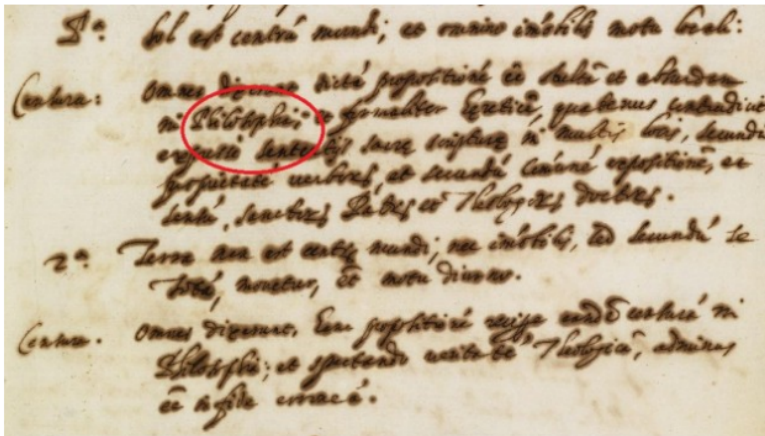 P.ª Sol est centrũ mundi; et omnino imõbilis motu locali:
Censura: Omnes dixerunt dictã propositionẽ ẽe stultã et absurdam
in Philosophia; et formaliter hereticã, quatenus contradicit
expresse sententijs sacre scripture in multis locis, secundũ
proprietatẽ verborũ, et secundũ cõmunẽ expositionẽ, et
sensũ, sanctorũ Patrũ et Theologorũ doctorũ.
2.ª Terra non est centrũ mundi; nec imõbilis, sed secundũ se
Totã, movetur, ẽt motu diurno.
Censura. Omnes dixerunt, hanc propositionẽ recipe eandẽ censurã in
Philosophia; et spectando veritatẽ Theologicã, adminus
ẽe in fide erroneã.